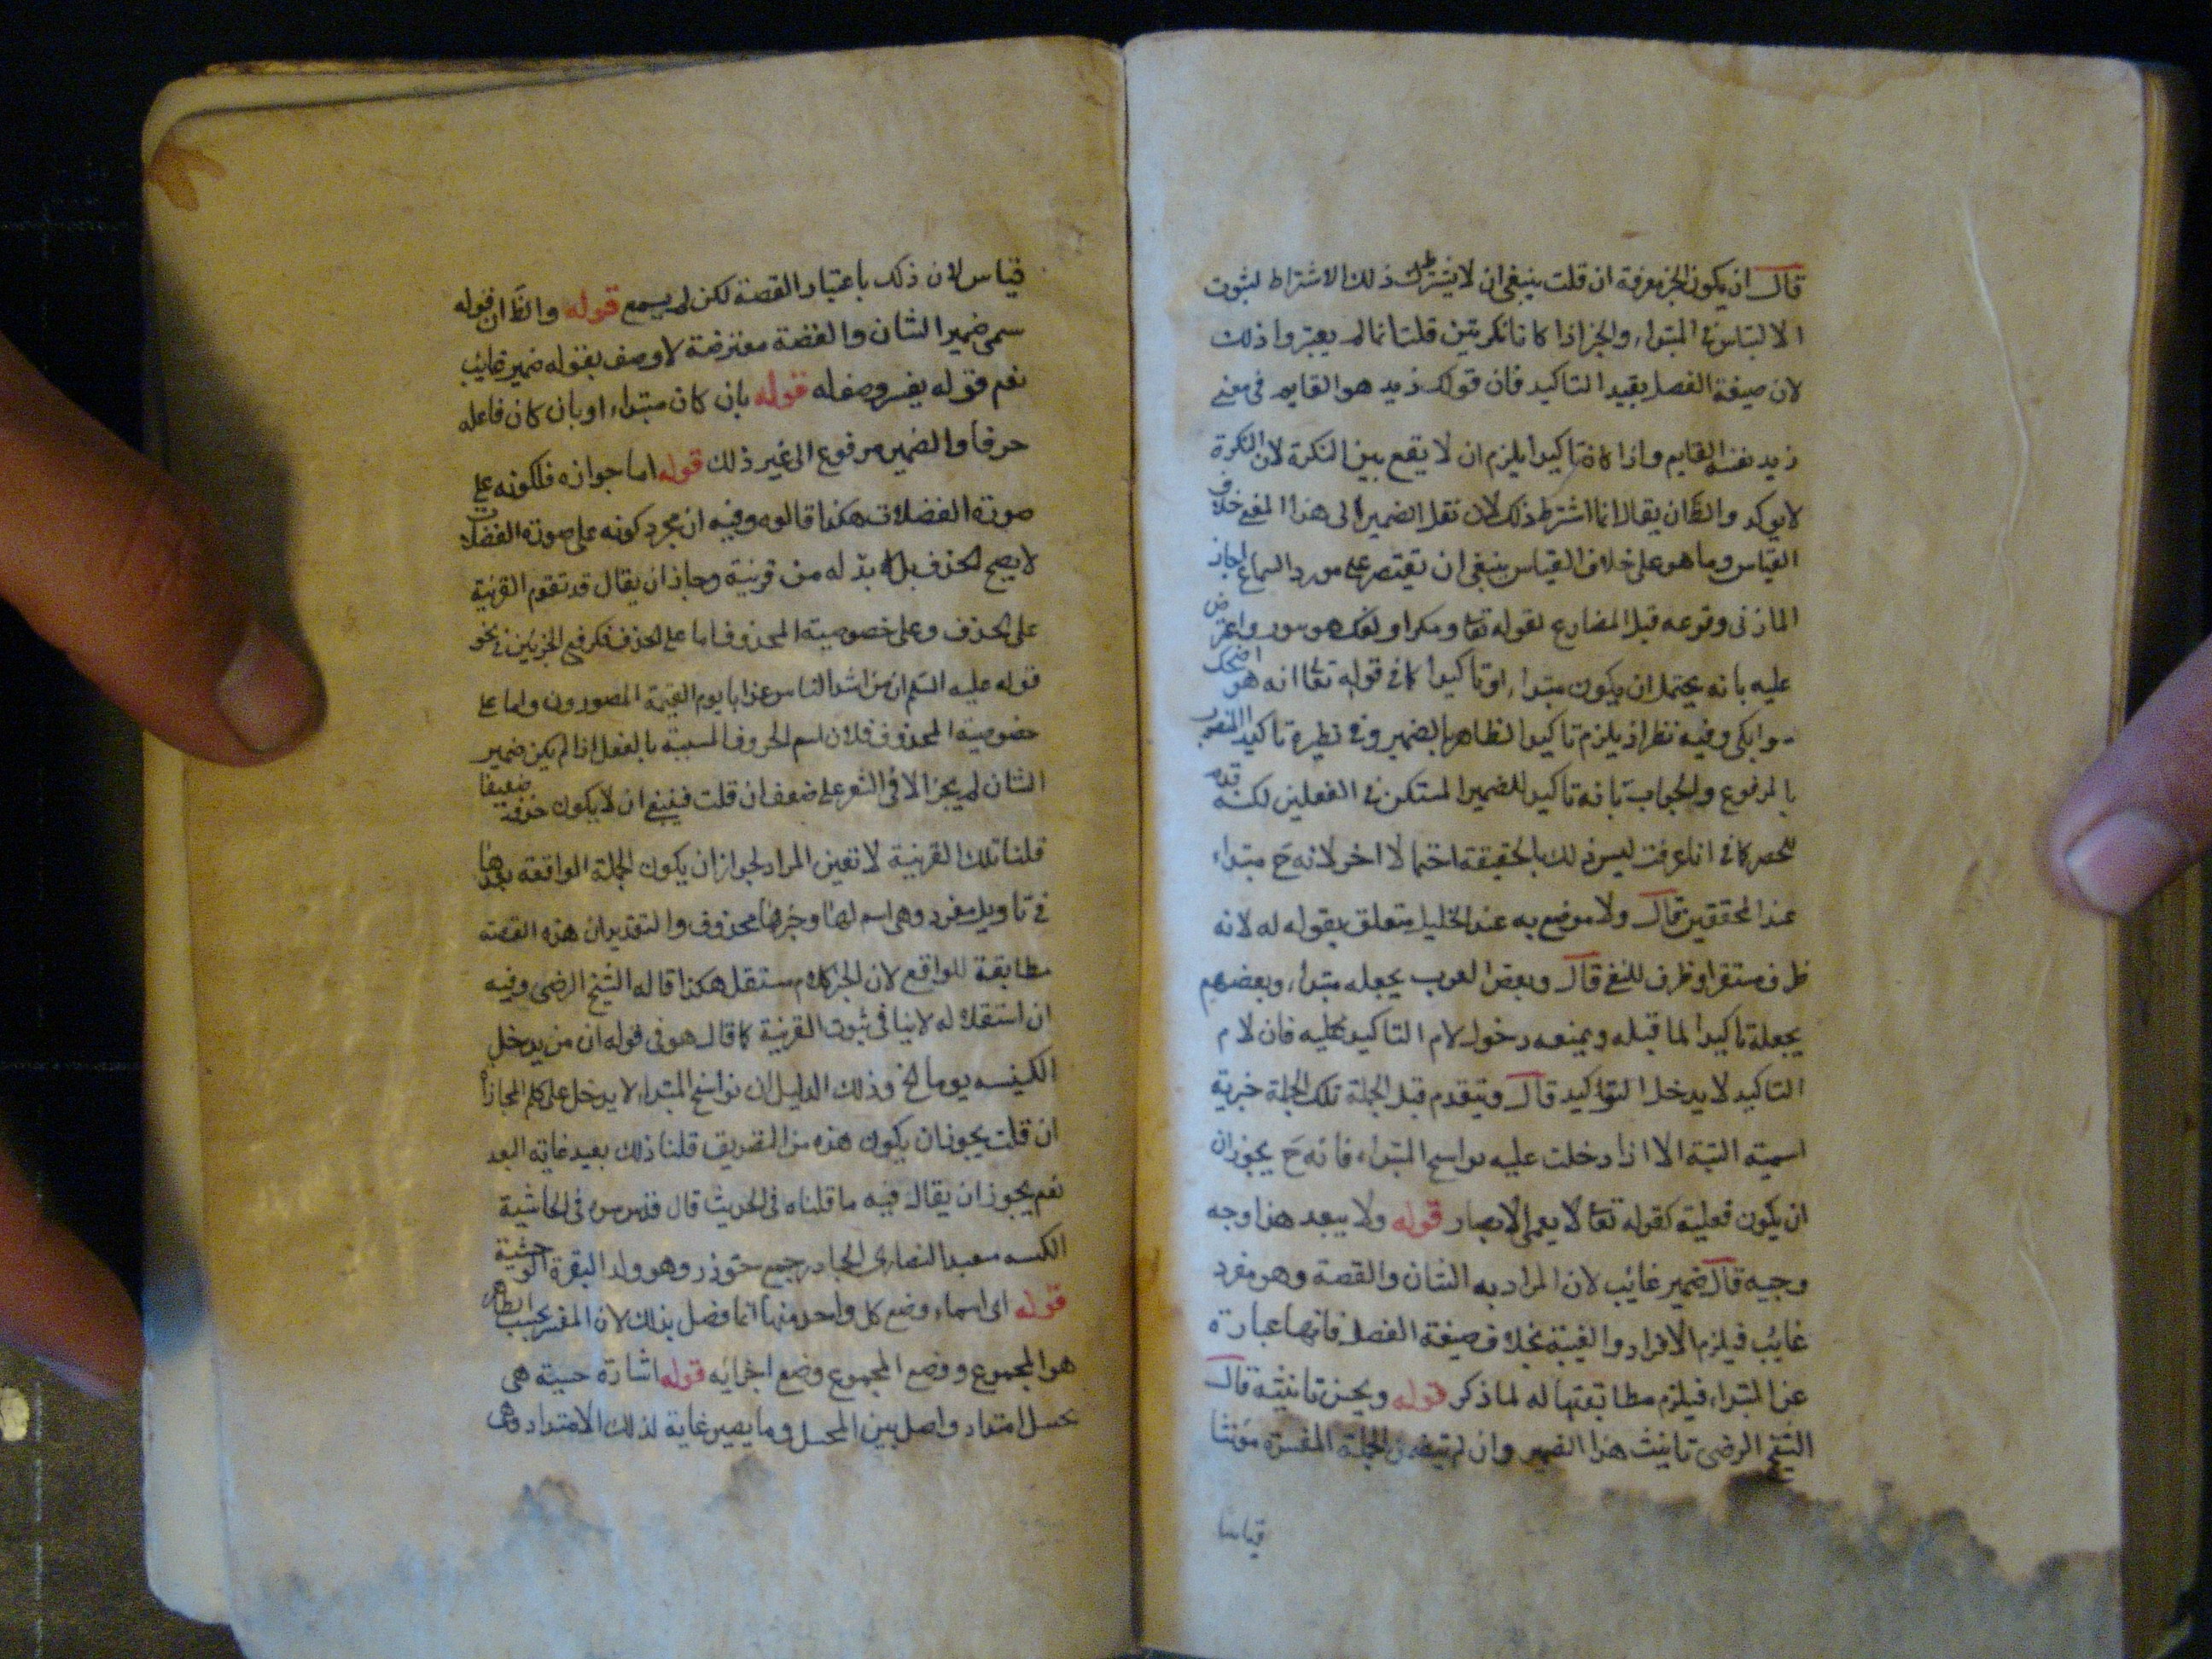 قال ان يكون الخبر معرفة ان قلت ينبغى ان لا يشترط ذلك الاشتراط لثبوت
الالتباس فى المبتداء والخبر اذا كانا نكرتين قلت انما لم يعتبروا ذلك
لان صيغة الفصل يفيد التاكيد فان قولك زيد هو القايم فى معنى
زيد نفسه القايم واذا كان تاكيدا يلزم ان لا يقع بين النكرة لان النكرة
لا يوكد والظ ان يقال انما اشترط ذلك لان نقل الضمير الى هذا المعنى خلاف
القياس وما هو على خلاف القياس ينبغى ان يقتصر على مورد السماع اجاز
المازنى وقوعه قبل المضارع لقوله تعا ومكر اولئك هو يبور واعترض
عليه بانه يحتمل ان يكون مبتداء او تاكيدا كما فى قوله تعا انه هو اضحك
وابكى وفيه نظر اذ يلزم تاكيد الظاهر بالضمير وفى نظيره تاكيد المنصوب
بالمرفوع والجواب بانه تاكيد للضمير المستكن فى الفعلين لكنه قدم
للحصر كما فى انا عرفت ليس ذلك بالحقيقة احتمالا اخر لانه ح مبتداء
عند المحققين قال ولا موضع به عند الخليل متعلق بقوله له لانه
ظرف مستقر او ظرف للنفى قال وبعض العرب يجعله مبتداء وبعضهم
يجعله تاكيدا لما قبله ويمنعه دخول لام التاكيد عليه فان لام
التاكيد لا يدخل التواكيد قال ويتقدم قبل الجملة تلك الجملة خبرية
اسمية البتة الا اذا دخلت عليه نواسخ المبتداء فانه ح يجوز ان
ان يكون فعلية كقوله تعا لا يعمى الابصار قوله ولا يبعد هذا وجه
وجيه قال ضمير غائب لان المراد به الشان والقصة وهو مفرد
غائب فيلزم الافراد والغيبة بخلاف صيغة الفصل فانها عبارة
عن المبتداء فيلزم مطابقتها له لما ذكر قوله ويحسن تانيثه قال
الشيخ الرضى تانيث هذا الضمير وان لم يتضمن الجملة المفسرة مؤنثا
قياسا
قياس لان ذلك باعتبار القصة لكن لم يسمع قوله والظ ان قوله
سمى ضمير الشان والقصة معترضة لا وصف بقوله ضمير غائب
نعم قوله يفسر وصف له قوله بان كان مبتداء او بان كان فاعله
حرفا والضمير مرفوع الى غير ذلك قوله اما جوازه فلكونه على
صورة الفضلات هكذا قالوه وفيه ان مجرد كونه على صورة الفضلات
لا يصح الحذف بل لا بد له من قرينة وجاز ان يقال قد تقوم القرينة
على الحذف وعلى خصوصية المحذوف اما على الحذف فكرفع الجزئين فى نحو
قوله عليه السلم ان من اشد الناس عذابا يوم القيمة المصورون واما على
خصوصية المحذوف فلان اسم الحروف المشبهة بالفعل اذا لم يكن ضمير
الشان لم يجز الا فى الشعر على ضعف ان قلت فينبغى ان لا يكون حذفه ضعيفا
قلنا تلك القرينة لا تعين المراد لجواز ان يكون الجملة الواقعة بعدها
فى تاويل مفرد وهى اسم لها وخبرها محذوف والتقدير ان هذه القصة
مطابقة للواقع لان الخبر كلام مستقل هكذا قاله الشيخ الرضى وفيه
ان استقلاله لا ينافى ثبوت القرينة كما قال هو فى قوله ان من يدخل
الكنيسة يوما الخ وذلك الدليل ان نواسخ المبتداء لا يدخل على كلم المجازاة
ان قلت يجوز ان يكون هذه من المقدر قلنا ذلك بعيد غاية البعد
نعم يجوز ان يقال فيه ما قلناه فى الحديث قال قدس سره فى الحاشية
الكنيسة معبد النصارى الجاذر جمع جؤذر وهو ولد البقرة الوحشية
قوله اى اسماء وضع كل واحد منها انما فصل بذلك لان المفسر بحسب الظاهر
هو المجموع ووضع المجموع وضع اجزائه قوله اشارة حسية هى
تحسل امتداد واصل بين المحسل وما يصير غاية لذلك الامتداد وهى